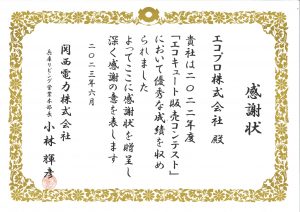 感謝状
エコプロ株式会社 殿
貴社は二〇二二年度
「エコキュート販売コンテスト」
において優秀な成績を収め
られました
よってここに感謝状を贈呈し
深く感謝の意を表します
二〇二三年六月
関西電力株式会社
兵庫リビング営業本部長 小林 輝彦